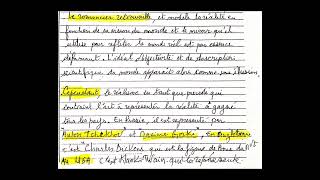 Le romancier retravaille, et modèle la réalité en
fonction de sa vision du monde et le miroir qu'il
utilise pour refléter le monde réel est par essence
déformant. L'idéal d'objectivité et de description
scientifique du monde apparait alors comme une illusion.
Cependant, le réalisme en tant que période qui
contraint l'art à représenter la réalité a gagné
tous les pays. En Russie, il est représenté par
Anton Tchekhov et Maxime Gorki. En Angleterre
c'est Charles Dickens qui est la figure de Proue du
Au USA c'est Twain qui la représente